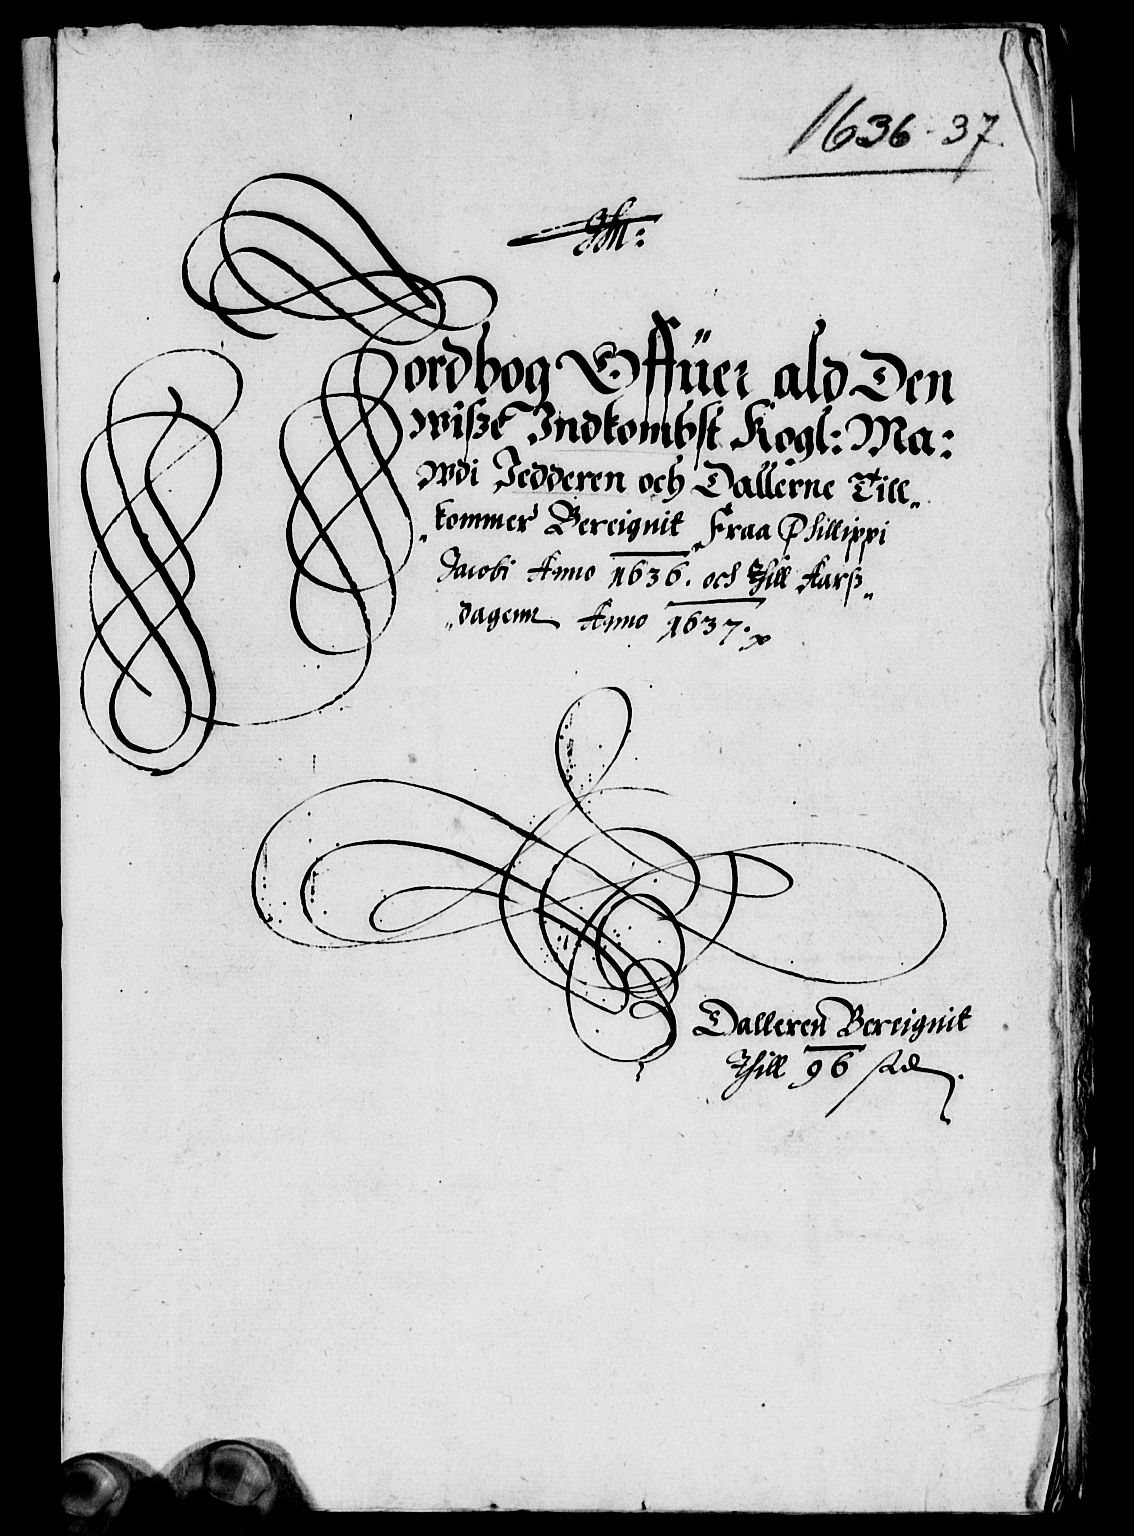 1636-37.
Jordbog Offüer ald Den
wisze Indkombst Kogl: Ma:
wdi Jedderen och Dallerne Till„
„kommer Bereignit Fraa Phillippi
Jacobi Anno 1636. och Thill Aarsz„
„dagenn Anno 1637.
Dalleren Bereignit
Thill 96 sk